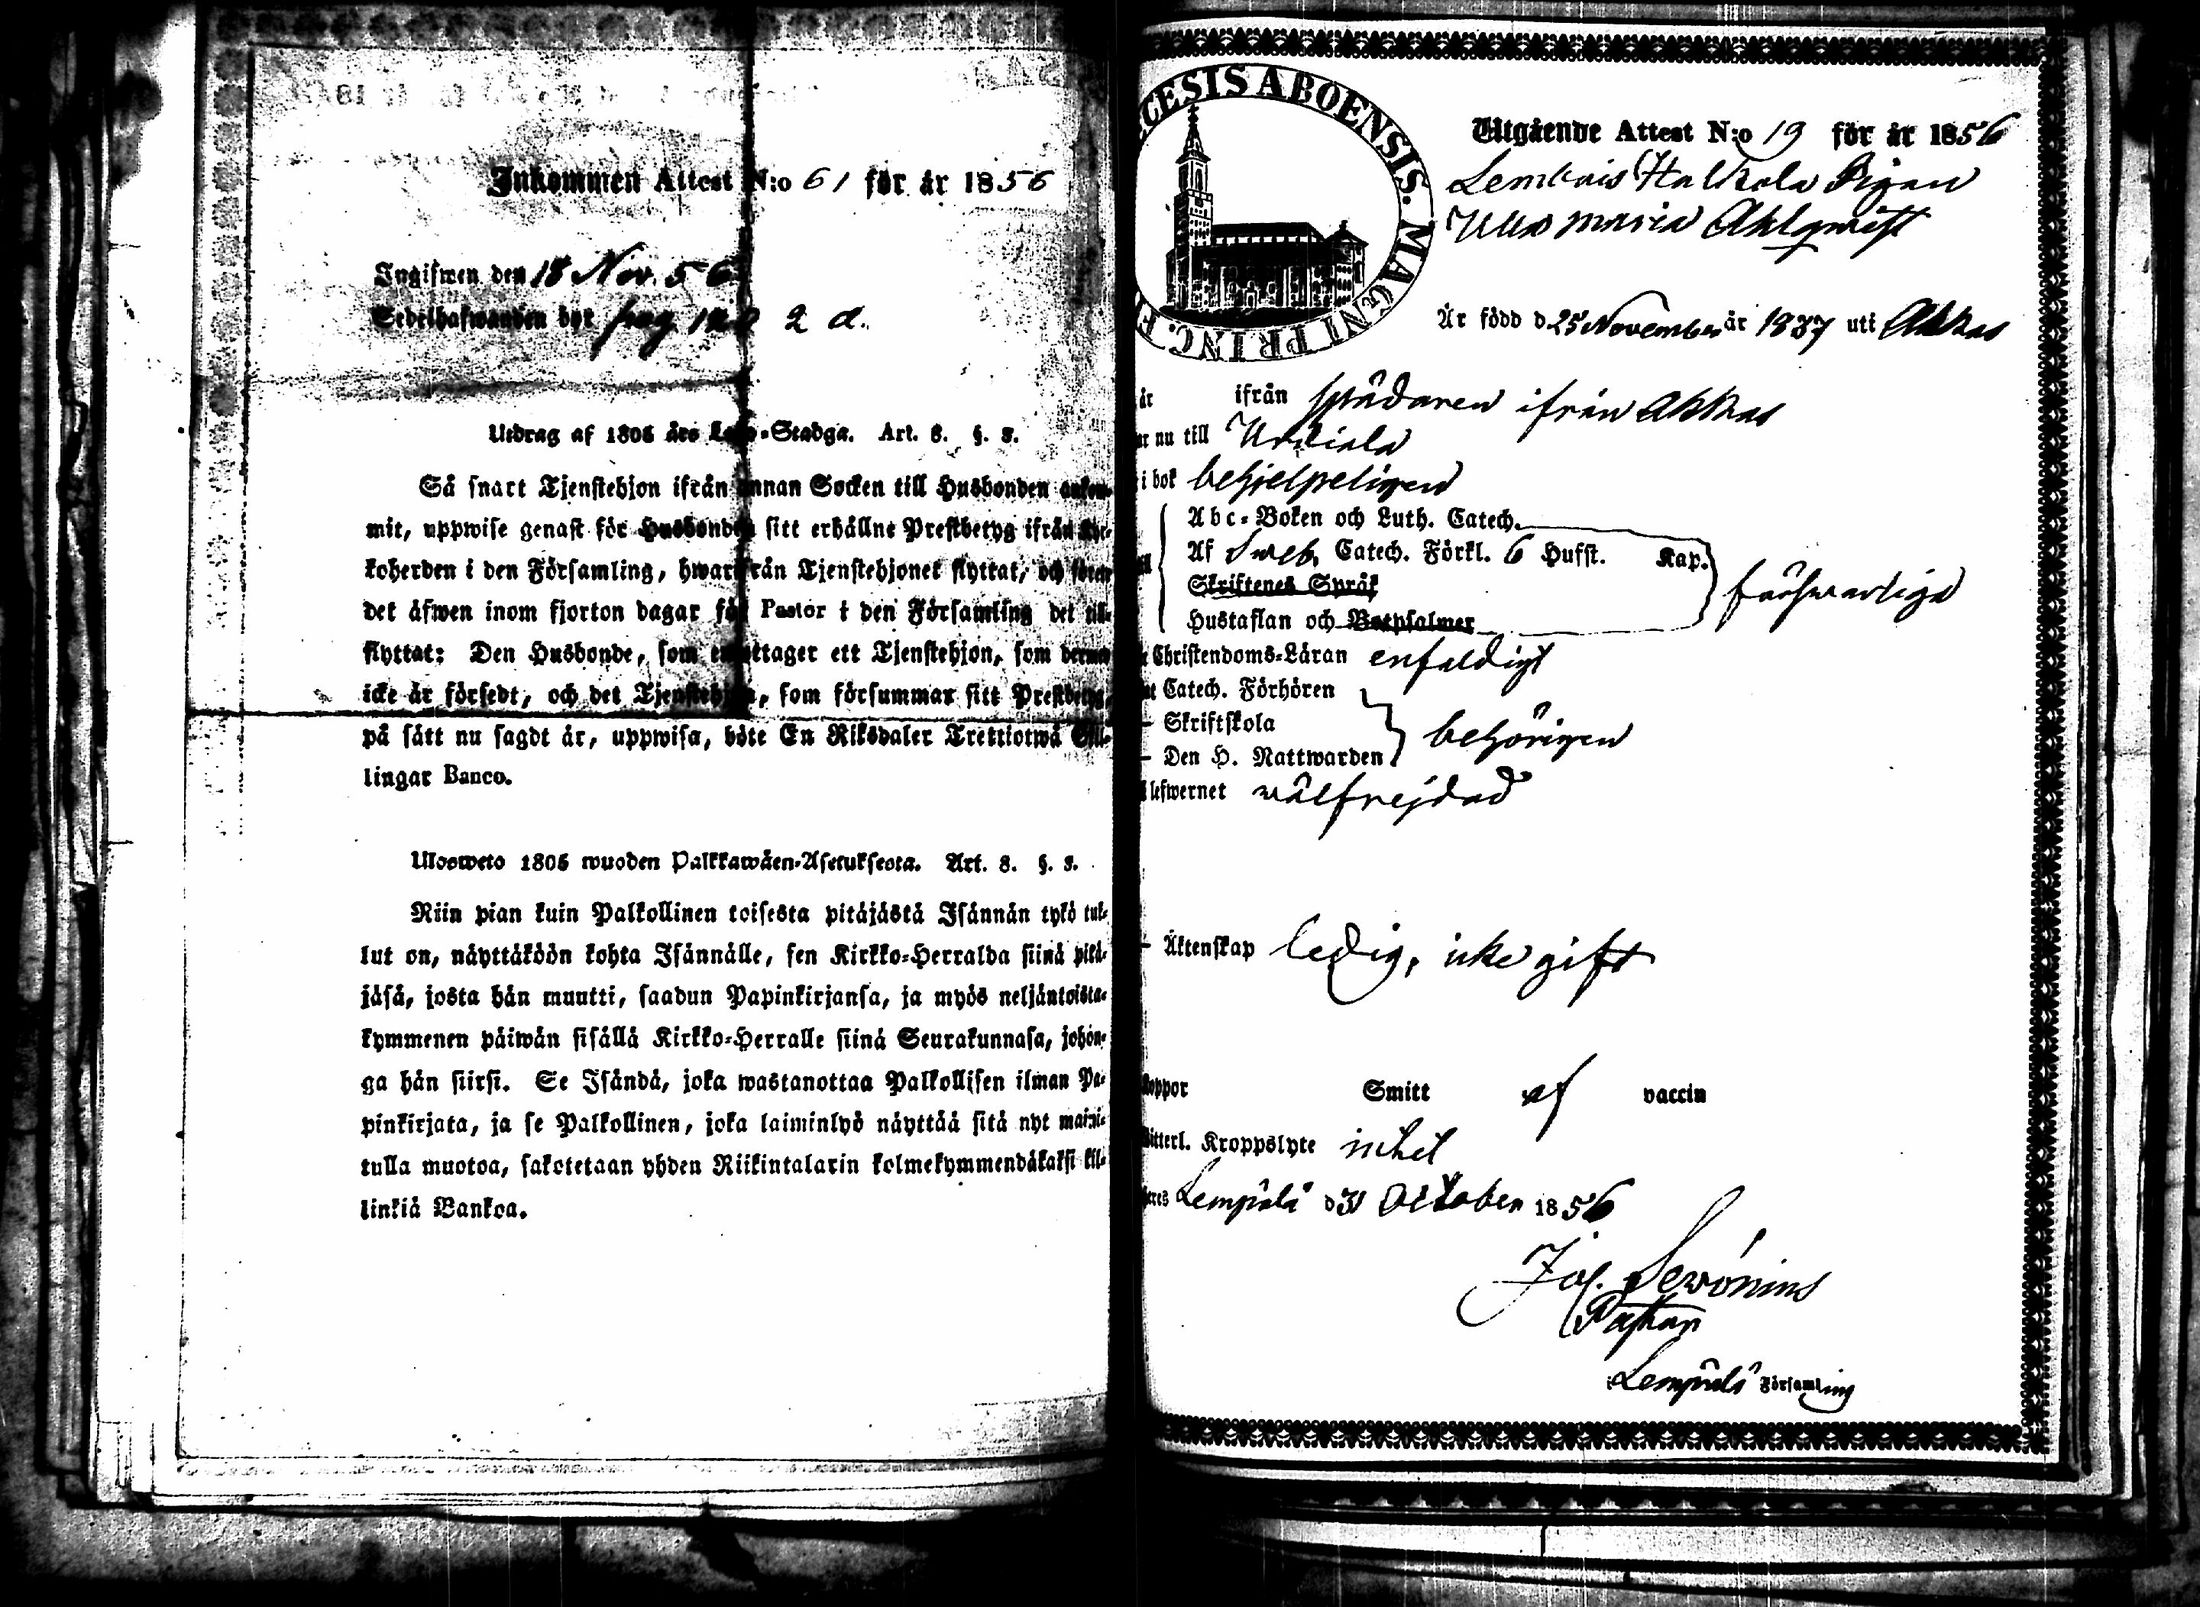 Inkommen Attest N:o 61 för år 1856
Ingifwen den 18 Nov. 56
Sedelhafwanden bor pag 2 d.
Utdrag af 1805 års Lego-Stadga. Art. 8. §. 8.
Så snart Tjenstehjon ifrån annan Socken till Husbonden ankom-
mit, uppwise genast för Husbonden sitt erhållne Prestbetyg ifrån Kyr-
koherden i den Församling, hwarifrån Tjenstehjonet flyttat, och sedan
det äfwen inom fjorton dagar för Pastor i den Församling det till-
flyttat: Den Husbonde, som emottager ett Tjenstehjon, som dermed
icke är försedt, och det Tjenstehjon, som försummar sitt Prestbetyg,
på sätt nu sagdt är, uppwisa, böte En Riksdaler Trettiotwå Skil-
lingar Banco.
Ulosweto 1805 wuoden Palkkawäen-Asetuksesta. Art. 8. §. 8.
Niin pian kuin Palkollinen toisesta pitäjästä Isännän tykö tul-
lut on, näyttäköön kohta Isännälle, sen Kirkko-Herralda siinä pitä-
jäsä, josta hän muutti, saadun Papinkirjansa, ja myös neljäntoista-
kymmenen päiwän sisällä Kirkko-Herralle siinä Seurakunnasa, johon-
ga hän siirsi. Se Isändä, joka wastanottaa Palkollisen ilman Pa-
pinkirjata, ja se Palkollinen, joka laiminlyö näyttää sitä nyt maini-
tulla muotoa, sakotetaan yhden Riikintalarin kolmekymmendäkaksi kil-
linkiä Bankoa.
CESIS ABOENSIS. MAGNI PRINC. F
Utgående Attest N:o 19 för år 1856
Lembois Halkola Pigan
Ulla Maria Ahlqwist
År född d 25 November år 1837 uti Akkas
år ifrån spädaren ifrån Akkas
ar nu till Urdiala
i bok behjelpeligen
Abc-Boken och Luth. Catech.
Af Sweb. Catech. Förkl. 6 Hufst. Kap.
Skriftenes Språk
Hustaflan och Botpsalmer
försvarliga
Christendoms-Läran enfaldigt
Catech. Förhören
– Skriftskola
– Den H. Nattwarden
behörigen
lefwernet wälfrejdad
– Äktenskap ledig, icke gift
koppor Smitt af vaccin
itterl. Kroppslyte intet
Lempälä d 31 October 1856
Jos. Serónius
Pastor
i Lempälä Församling